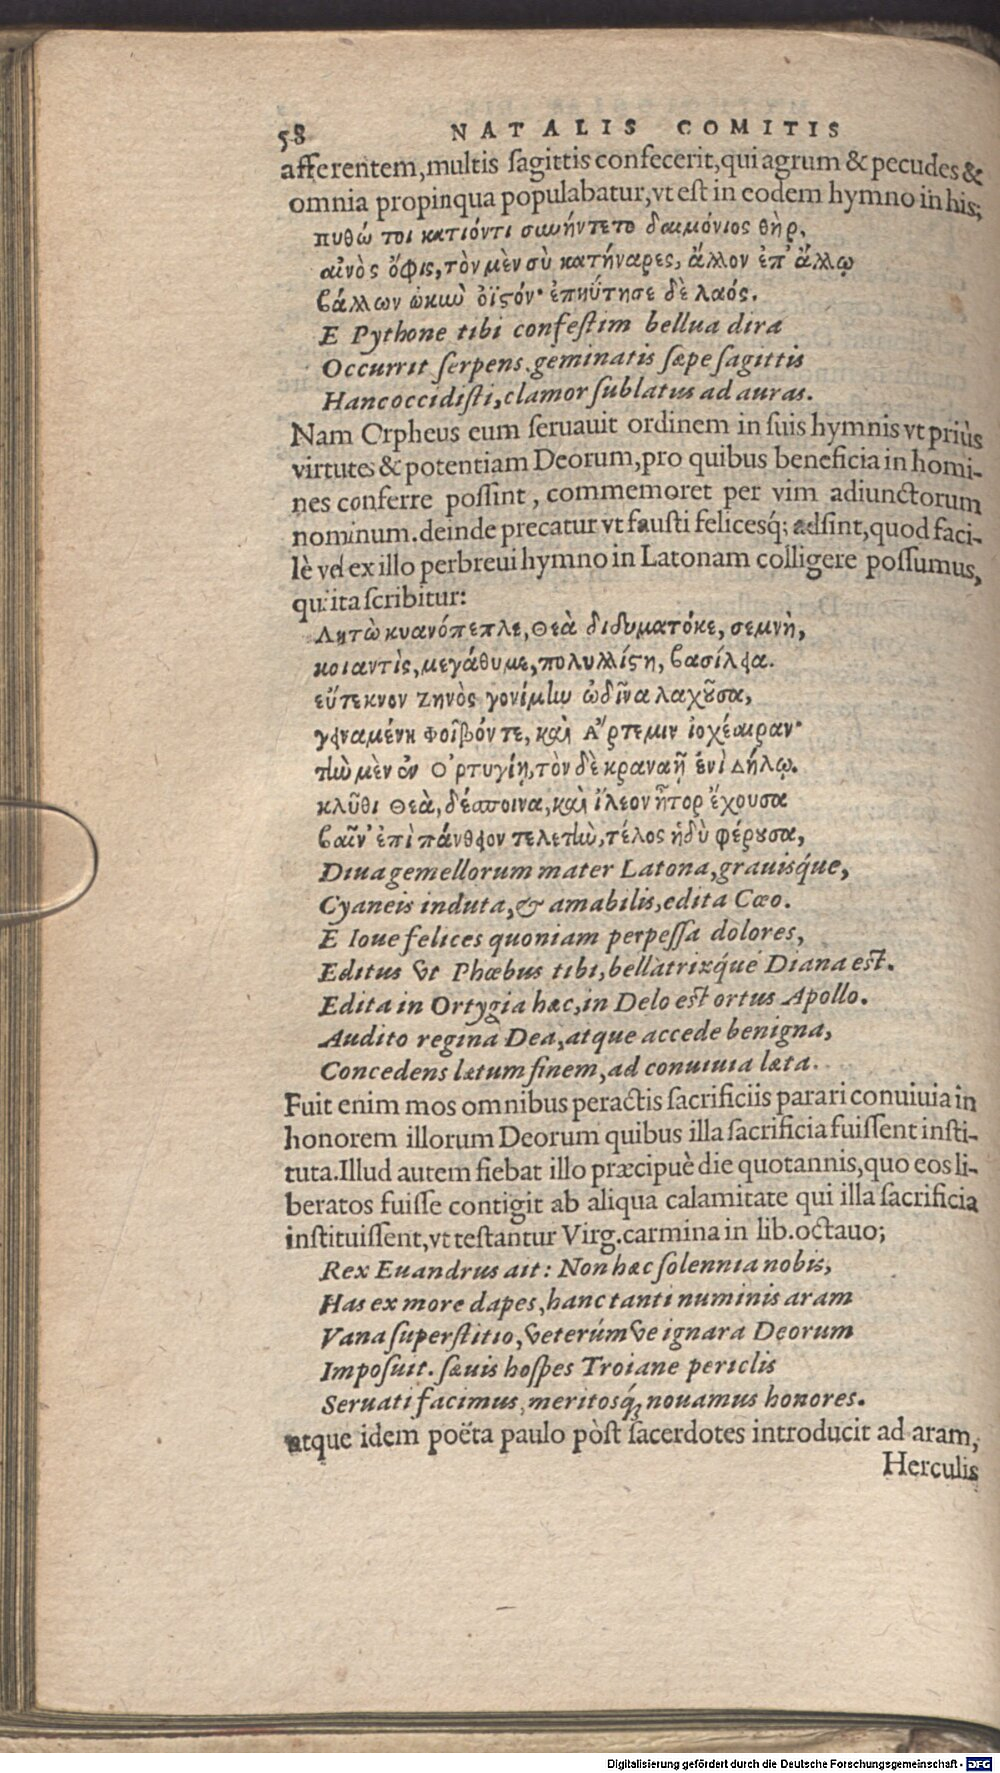 58 NATALIS COMITIS
afferentem, multis sagittis confecerit, qui agrum & pecudes &
omnia propinqua populabatur, vt est in eodem hymno in his;
πυθώ τοι κατιόντι συνήντετο δαιμόνιος θὴρ,
αἰνὸς ὄφις, τὸν μὲν σὺ κατήναρες, ἄλλον ἐπ' ἄλλῳ
βάλλων ὠκὺν ὀϊστόν· ἐπηΰτησε δὲ λαός.
E Pythone tibi confestim bellua dira
Occurrit serpens, geminatis sæpe sagittis
Hanc occidisti, clamor sublatus ad auras.
Nam Orpheus eum seruauit ordinem in suis hymnis vt priùs
virtutes & potentiam Deorum, pro quibus beneficia in homi-
nes conferre possint, commemoret per vim adiunctorum
nominum. deinde precatur vt fausti felicesq́; adsint, quod faci-
lè vel ex illo perbreui hymno in Latonam colligere possumus,
qui ita scribitur:
Λητὼ κυανόπεπλε, Θεὰ διδυματόκε, σεμνὴ,
κοιαντὶς, μεγάθυμε, πολυλλίστη, βασίλεια.
εὔτεκνον Ζηνὸς γονίμην ὠδῖνα λαχοῦσα,
γειναμένη Φοῖβόν τε, καὶ Ἄρτεμιν ἰοχέαιραν·
τὴν μὲν ἐν Ὀρτυγίῃ, τὸν δὲ κραναῇ ἐνὶ Δήλῳ.
κλῦθι Θεὰ, δέσποινα, καὶ ἵλεον ἦτορ ἔχουσα
βαῖν' ἐπὶ πάνθειον τελετὴν, τέλος ἡδὺ φέρουσα,
Diua gemellorum mater Latona, grauisq́ue,
Cyaneis induta, & amabilis, edita Cœo.
E Ioue felices quoniam perpessa dolores,
Editus vt Phœbus tibi, bellatrixq́ue Diana est.
Edita in Ortygia hæc, in Delo est ortus Apollo.
Audito regina Dea, atque accede benigna,
Concedens lætum finem, ad conuiuia læta.
Fuit enim mos omnibus peractis sacrificiis parari conuiuia in
honorem illorum Deorum quibus illa sacrificia fuissent insti-
tuta. Illud autem fiebat illo præcipuè die quotannis, quo eos li-
beratos fuisse contigit ab aliqua calamitate qui illa sacrificia
instituissent, vt testantur Virg. carmina in lib. octauo;
Rex Euandrus ait: Non hæc solennia nobis,
Has ex more dapes, hanc tanti numinis aram
Vana superstitio, veterúmve ignara Deorum
Imposuit. sæuis hospes Troiane periclis
Seruati facimus, meritosq́; nouamus honores.
atque idem poëta paulo pòst sacerdotes introducit ad aram,
Herculis
Digitalisierung gefördert durch die Deutsche Forschungsgemeinschaft - DFG